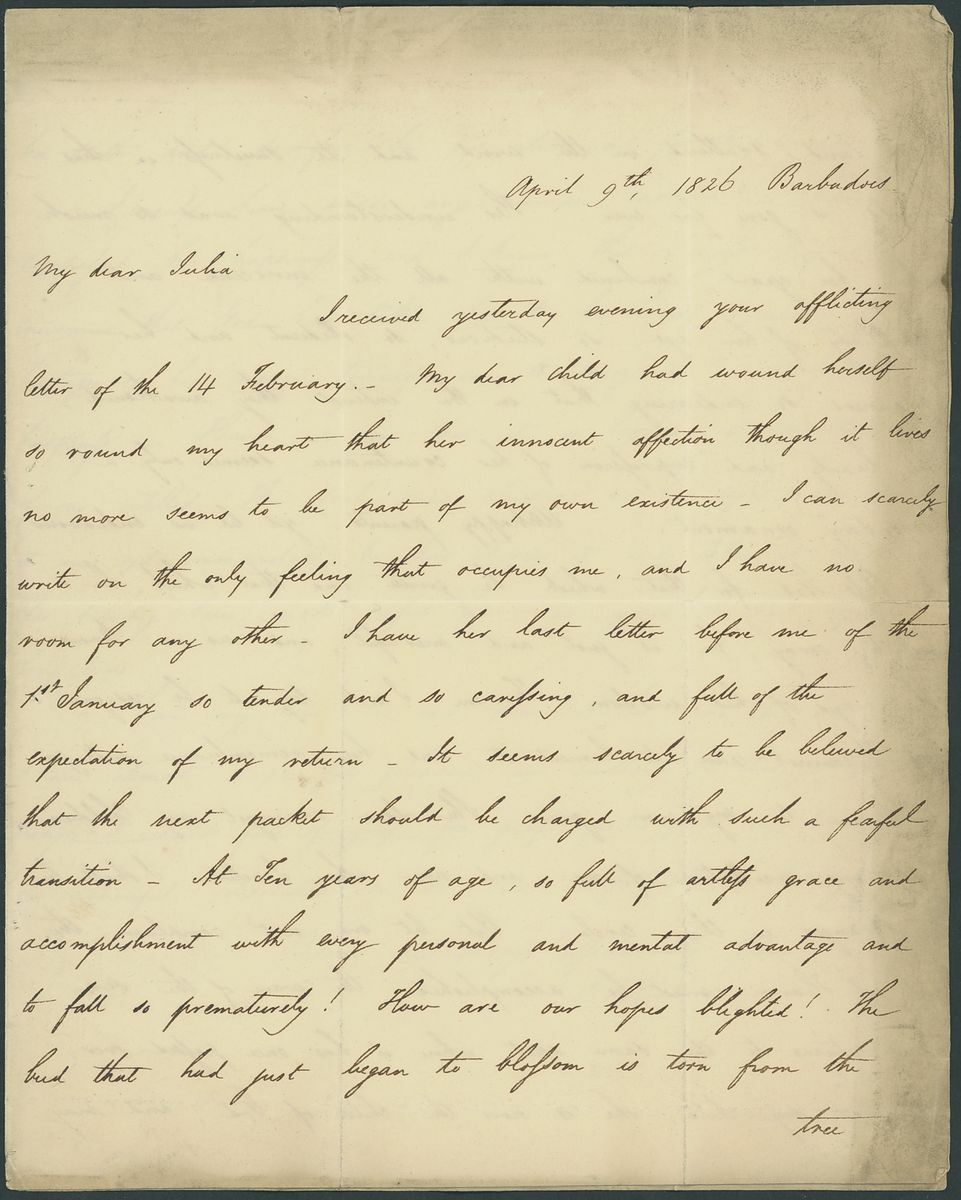 April 9th, 1826 Barbadoes
My dear Julia
I received yesterday evening your afflicting
letter of the 14 February. - My dear child had wound herself
so round my heart that her innocent affection though it lives
no more seems to be part of my own existence - I can scarcely
write on the only feeling that occupies me, and I have no
room for any other - I have her last letter before me of the
1st January so tender and so caressing, and full of the
expectation of my return - It seems scarcely to be believed
that the next packet should be charged with such a fearful
transition - At Ten years of age, so full of artless grace and
accomplishment with every personal and mental advantage and
to fall so prematurely! How are our hopes blighted! The
bud that had just began to blossom is torn from the
tree